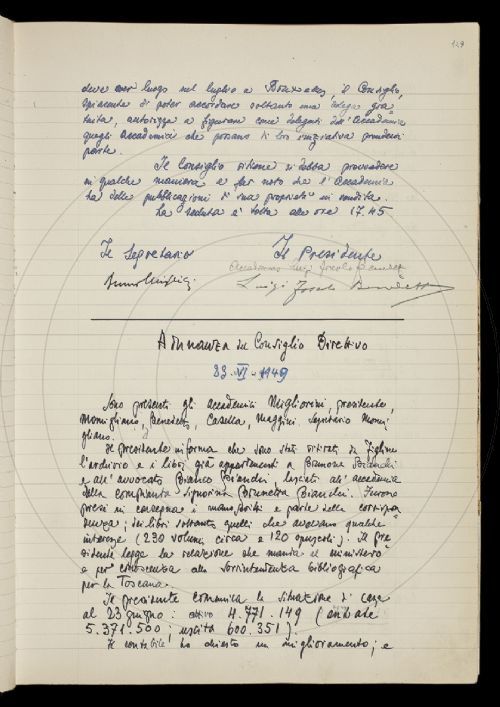 129
deve aver luogo nel luglio a Bruxelles, il Consiglio,
spiacente di poter accordare soltanto una delega gra
tuita, autorizza a figurare come delegati dell'Accademia
quegli Accademici che possano di loro iniziativa prendervi
parte.
Il Consiglio ritiene si debba provvedere
in qualche maniera a far noto che l'Accademia
ha delle pubblicazioni di sua proprietà in vendita.
La seduta è tolta alle ore 17.45
Il Segretario Il Presidente
Bruno Migliorini Luigi Foscolo Benedetto
Adunanza del Consiglio Direttivo
23.VI.1949
Sono presenti gli Accademici Migliorini, presidente,
Momigliano, Benedetto, Casella, Maggini. Segretario Momi
gliano.
Il presidente informa che sono stati ritirati da Figline
l'archivio e i libri già appartenenti a Bianchi
e all'avvocato Bianco Bianchi, lasciati all'accademia
dalla compianta signorina Brunetta Bianchi. Furono
presi in consegna i manoscritti e parte della corrispon
denza; dei libri soltanto quelli che avevano qualche
interesse (230 volumi circa e 120 opuscoli). Il pre
sidente legge la relazione che manda al ministero
e per conoscenza alla Sovrintendenza bibliografica
per la Toscana.
Il presidente comunica la situazione di cassa
al 23 giugno: attivo 4.771.149 (entrate
5.371.500; uscite 600.351).
Il contabile ha chiesto un miglioramento; e